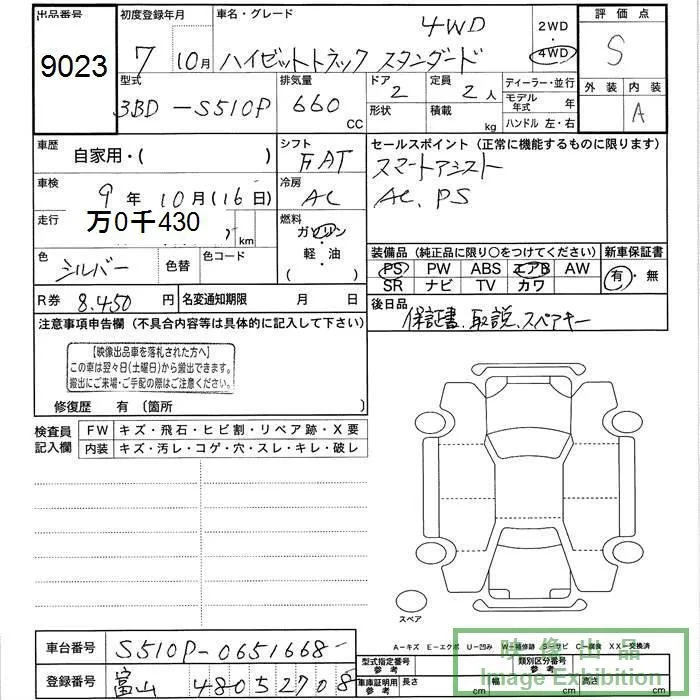 出品番号 初度登録年月 車名・グレード 4WD 2WD 評価点
9023 7 10月 ハイゼットトラック スタンダード 4WD S
型式 排気量 ドア 定員 ディーラー・並行 外装 内装
3BD-S510P 660 CC 2 2人 モデル年式 年 A
形状 積載 kg ハンドル 左・右
車歴 自家用・( ) シフト FAT セールスポイント(正常に機能するものに限ります)
車検 9年10月(16日) 冷房 AC スマートアシスト
走行 万0千430 km 燃料 ガソリン・軽・油 ( ) AC、PS
色 シルバー 色替 色コード 装備品(純正品に限り〇をつけてください) 新車保証書
PS PW ABS エアB AW 有・無
SR ナビ TV カワ
R券 8.450円 名変通知期限 月 日 後日品
保証書、取説、スペアキー
注意事項申告欄(不具合内容等は具体的に記入して下さい)
【映像出品車を落札された方へ】
この車は翌々日(土曜日)から搬出できます。
搬出にご来場・ご手配の際はご注意ください。
修復歴 有〔箇所 〕
検査員記入欄 FW キズ・飛石・ヒビ割・リペア跡・X要
内装 キズ・汚レ・コゲ・穴・スレ・キレ・破レ
スペア
車台番号 S510P-0651668-
A-キズ E-エクボ U-凹み W-補修跡 S-サビ C-腐食 XX-交換済
型式指定番号 参考 類別区分番号 参考
登録番号 富山 480 5 2708
車庫証明用参考 長さ cm 幅 cm 高さ cm
映像出品
Image Exhibition